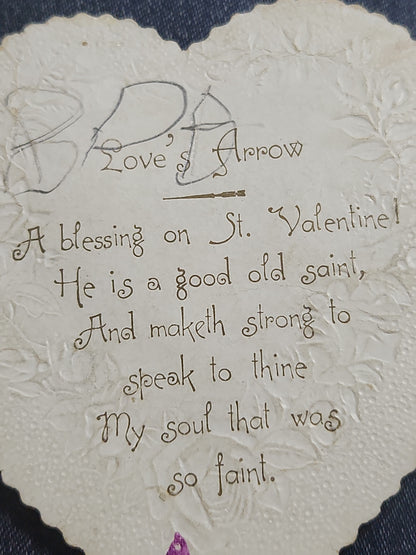 B P B
Love's Arrow
A blessing on St. Valentine!
He is a good old saint,
And maketh strong to
speak to thine
My soul that was
so faint.